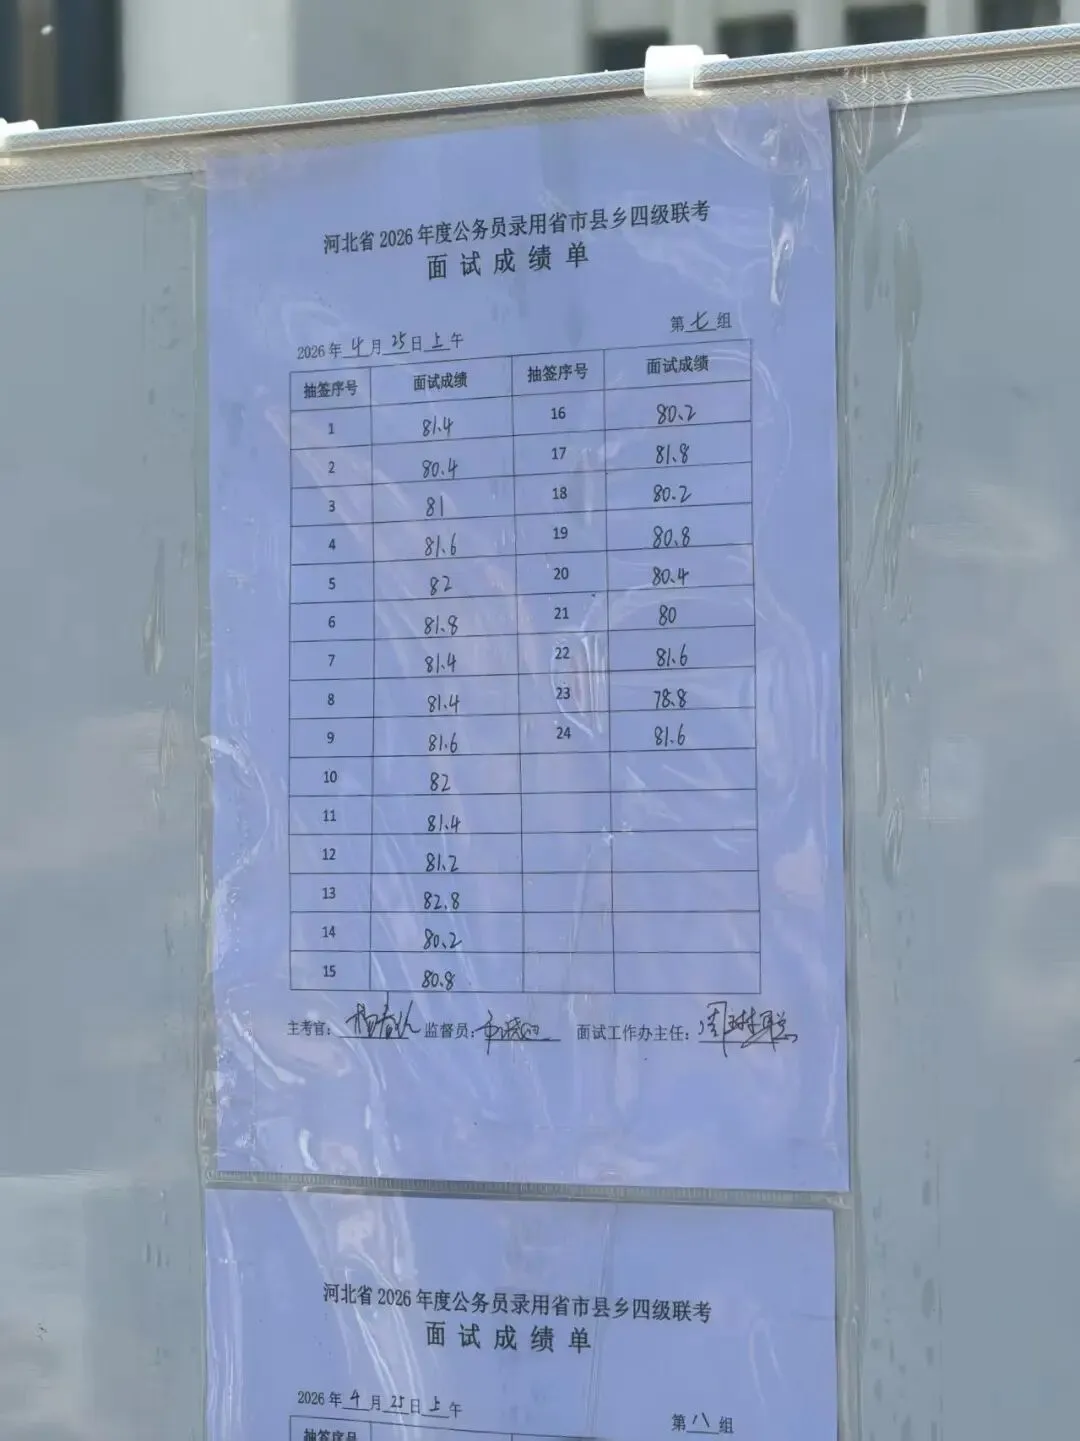 河北省2026年度公务员录用省市县乡四级联考
面试成绩单
2026年4月25日上午
第七组
抽签序号 面试成绩 抽签序号 面试成绩
1 81.4 16 80.2
2 80.4 17 81.8
3 81 18 80.2
4 81.6 19 80.8
5 82 20 80.4
6 81.8 21 80
7 81.4 22 81.6
8 81.4 23 78.8
9 81.6 24 81.6
10 82
11 81.4
12 81.2
13 82.8
14 80.2
15 80.8
主考官: 监督员: 面试工作办主任:
河北省2026年度公务员录用省市县乡四级联考
面试成绩单
2026年4月25日上午
第八组
抽签序号